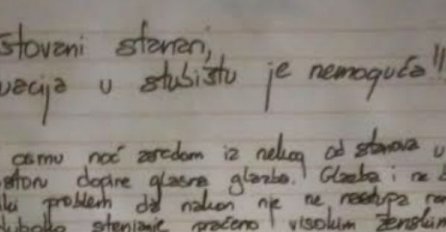 štovani stanari,
uacija u stubištu je nemoguća!!
osmu noć zaredom iz nekog od stanova u
dopire glasna glazba. Glazba i ne b
problem da nakon nje ne nastupa
duboko stenjanje praćeno visokim ženskim